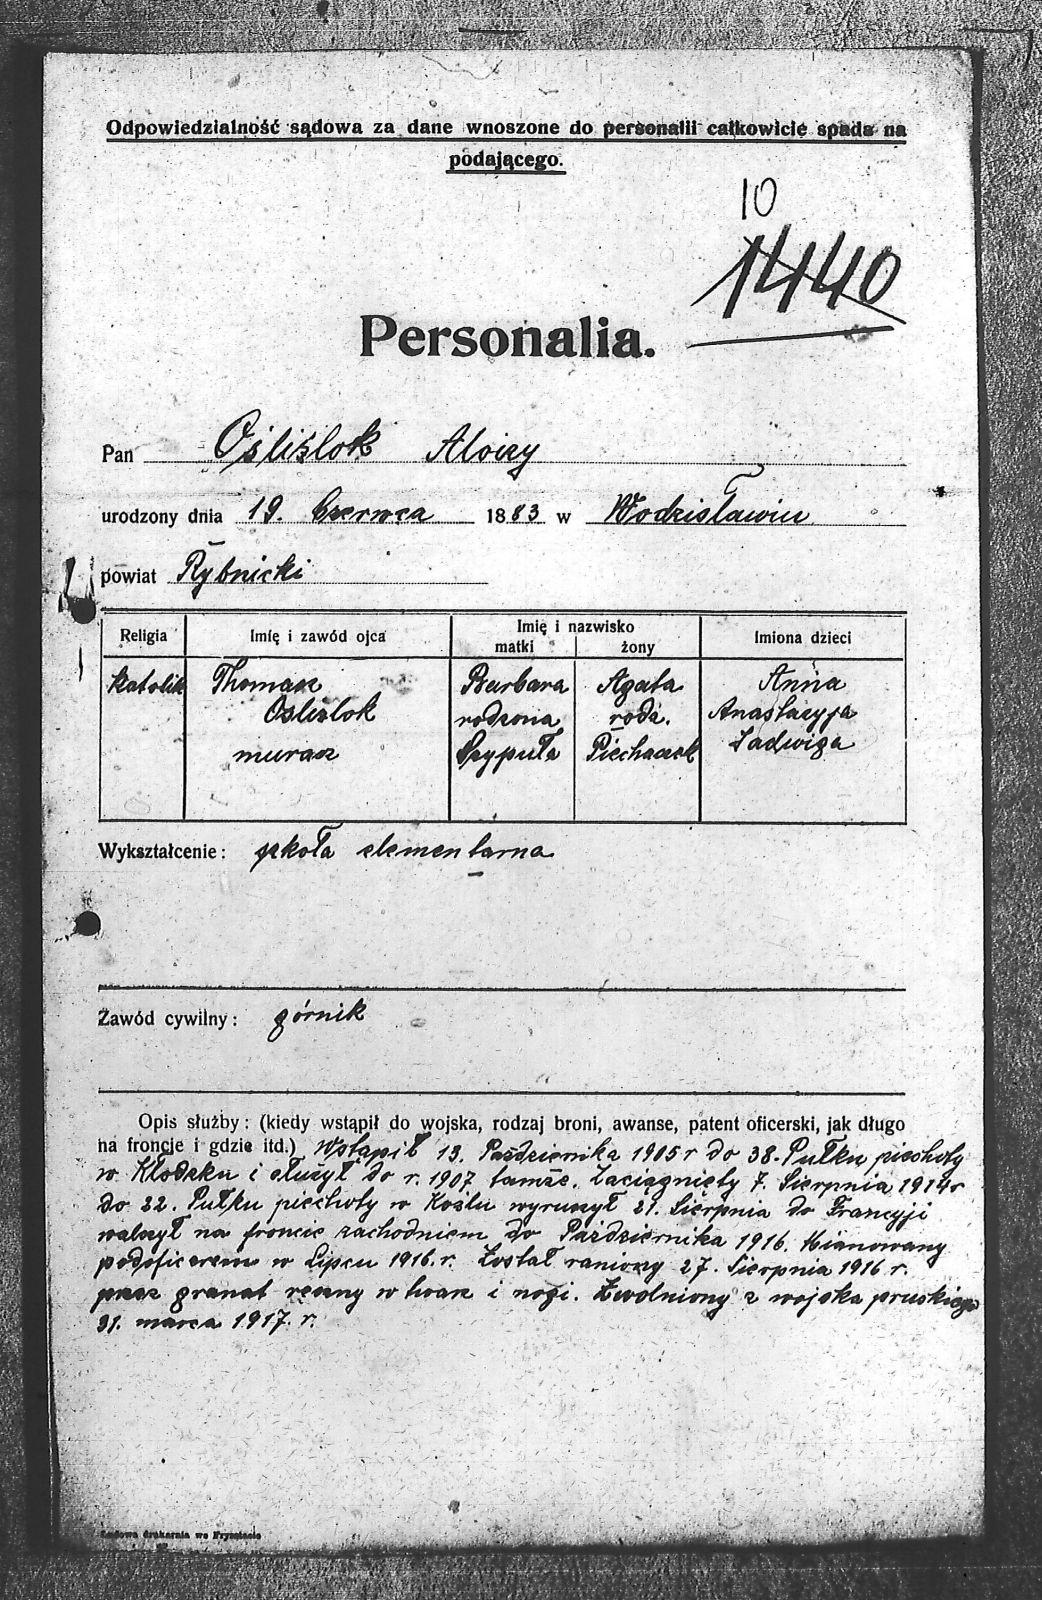 Odpowiedzialność sądowa za dane wnoszone do personalii całkowicie spada na
podającego.
10
1440
Personalia.
Pan Ośliślok Alojzy
urodzony dnia 19. Czerwca 1883 w Wodzisławiu
powiat Rybnicki
Religia Imię i zawód ojca Imię i nazwisko Imiona dzieci
matki żony
katolik Thomasz Barbara Agata Anna
Osliślok rodzona rodz. Anastazyja
murarz Szypuła Piechaczek Jadwiga
Wykształcenie: szkoła elementarna
Zawód cywilny: górnik
Opis służby: (kiedy wstąpił do wojska, rodzaj broni, awanse, patent oficerski, jak długo
na froncie i gdzie itd.) Wstąpił 13. Października 1905 r do 38. Pułku piechoty
w Kłodzku i służył do r. 1907 tamże. Zaciągnięty 7. Sierpnia 1914 r
do 22. Pułku piechoty w Koźlu wyruszył 21. Sierpnia do Francyji
walczył na froncie zachodniem do Października 1916. Mianowany
podoficerem w Lipcu 1916. r. Został raniony 27. Sierpnia 1916 r.
przez granat ręczny w twarz i nogi. Zwolniony z wojska pruskiego
31. marca 1917. r.
drukarnia we Frysztacie